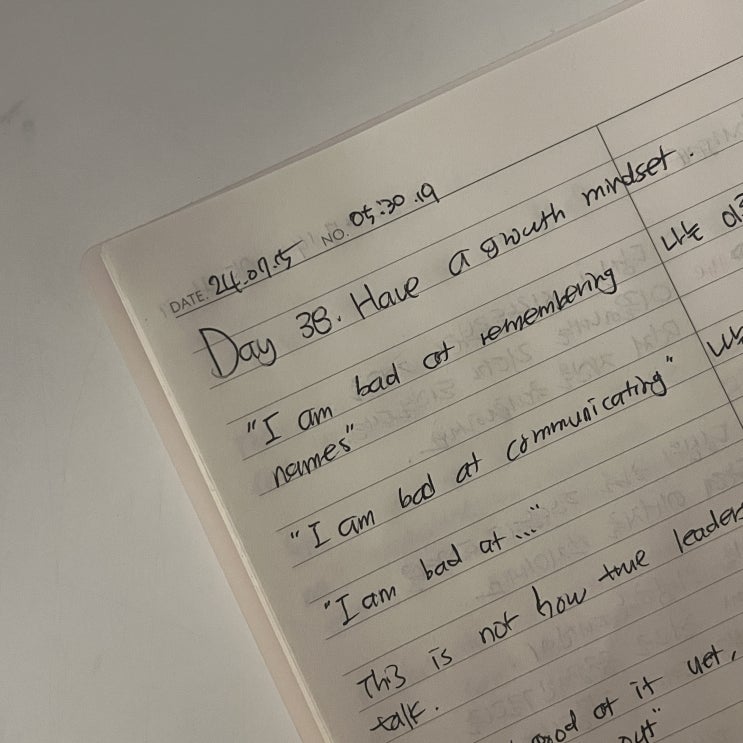 DATE. 24.07.15 NO. 05:30.19
Day 38. Have a growth mindset.
"I am bad at remembering
names"
나는
"I am bad at communicating"
"I am bad at ..."
This is not how true leaders
talk.
at it yet,